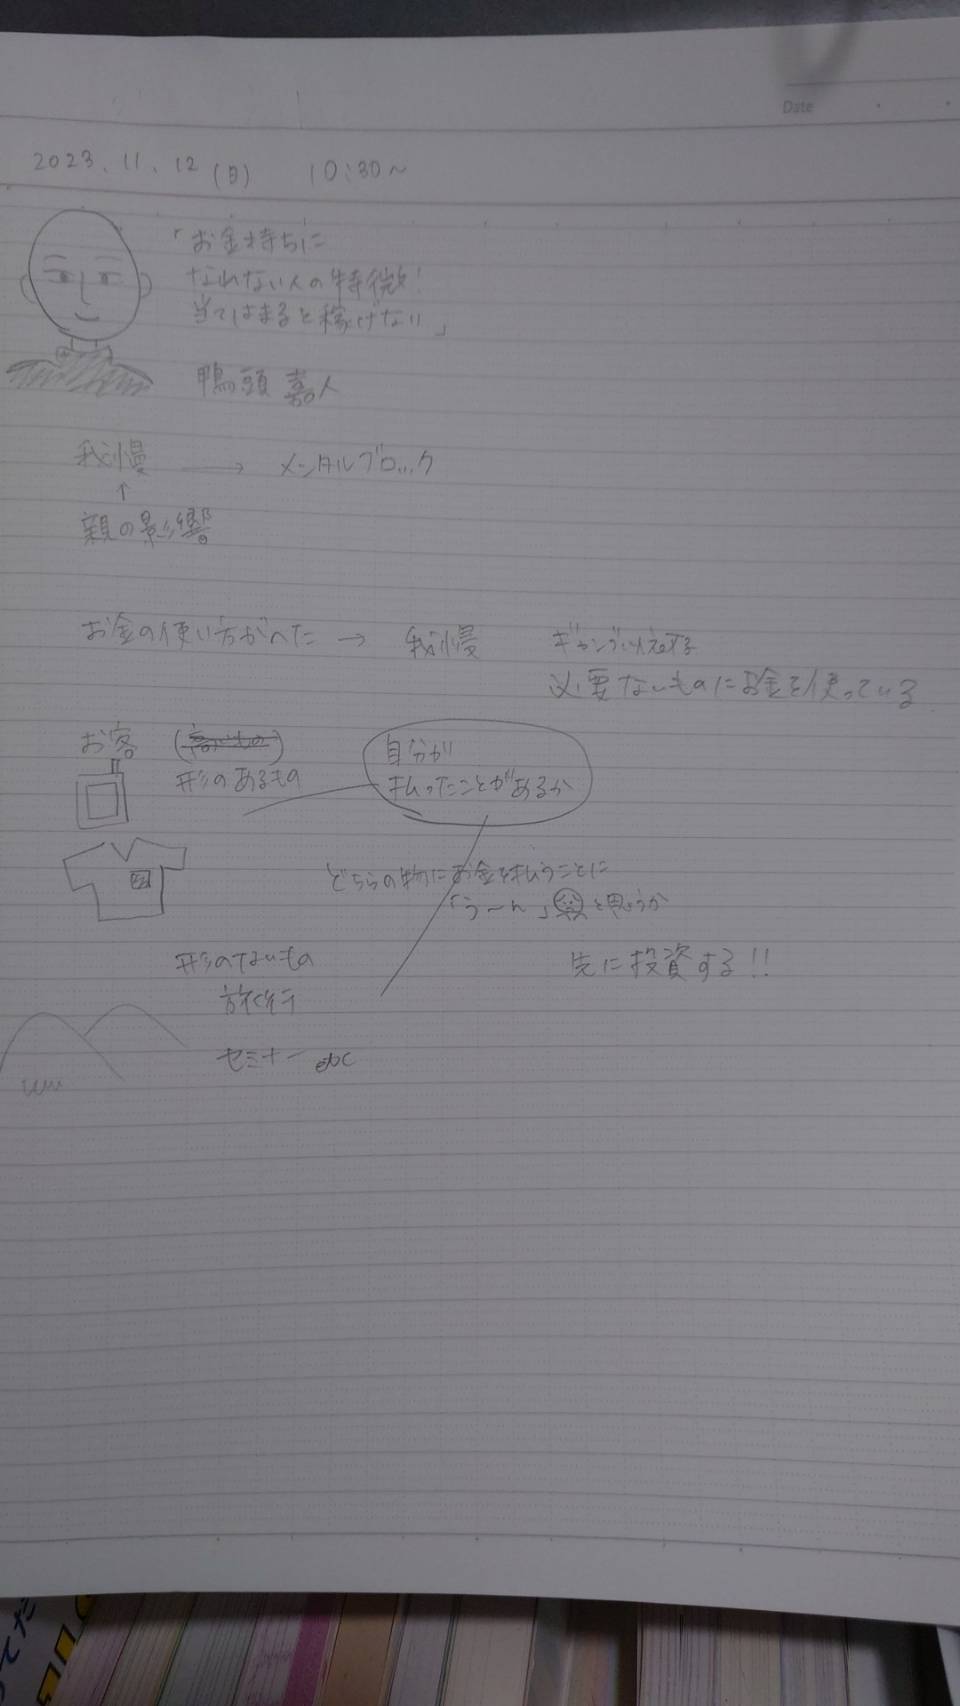 Date
2023.11.12(日) 10:30〜
「お金持ちに
なれない人の特徴!
当てはまると稼げない」
鴨頭 嘉人
我慢 → メンタルブロック
↑
親の影響
お金の使い方がへた → 我慢
必要ないものにお金を使っている
お客
形のあるもの
自分が
払ったことがあるか
どちらの物にお金を払うことに
「うーん」と思うか
形のないもの
旅行
先に投資する!!
セミナー etc